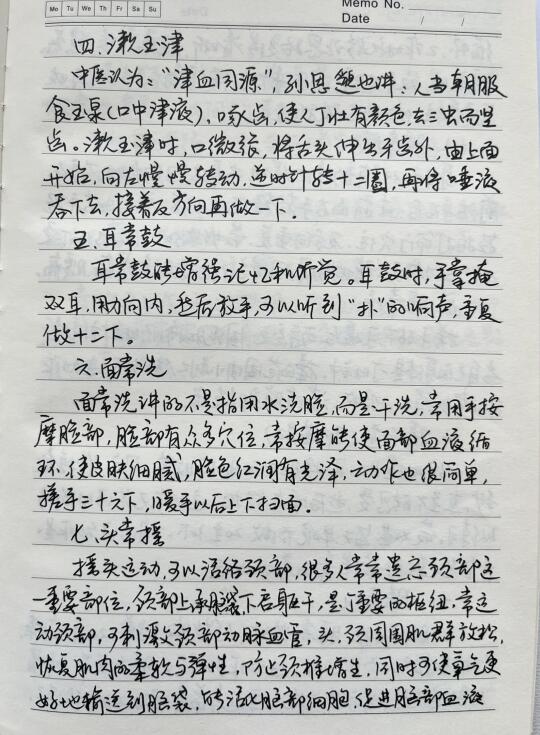 Mo Tu We Th Fr Sa Su
Memo No.
Date / /
四、漱玉津
中医认为:“津血同源”,孙思邈也讲:人当朝服
食玉泉(口中津液),啄齿,使人丁壮有颜色,去三虫而坚
齿。漱玉津时,口微张,将舌头伸出牙齿外,由上面
开始,向左慢慢转动,逆时针转十二圈,再将唾液
吞下去,接着反方向再做一下.
五、耳常鼓
耳常鼓能增强记忆和听觉。耳鼓时,手掌掩
双耳,用力向内,然后放手,可以听到“扑”的响声,重复
做十二下。
六、面常洗
面常洗讲的不是指用水洗脸,而是干洗,常用手按
摩脸部,脸部有众多穴位,常按摩能使面部血液循
环,使皮肤细腻,脸色红润有光泽,动作也很简单,
搓手三十六下,暖手以后上下扫面.
七、头常摇
摇头运动,可以活络颈部,很多人常常遗忘颈部这
一重要部位,颈部上承脑袋下启躯干,是个重要的枢纽,常运
动颈部,可刺激颈部动脉血管,头、颈周围肌群放松,
恢复肌肉的柔软与弹性,防止颈椎增生,同时可使氧气更
好地输送到脑袋,能活化脑部细胞,促进脑部血液